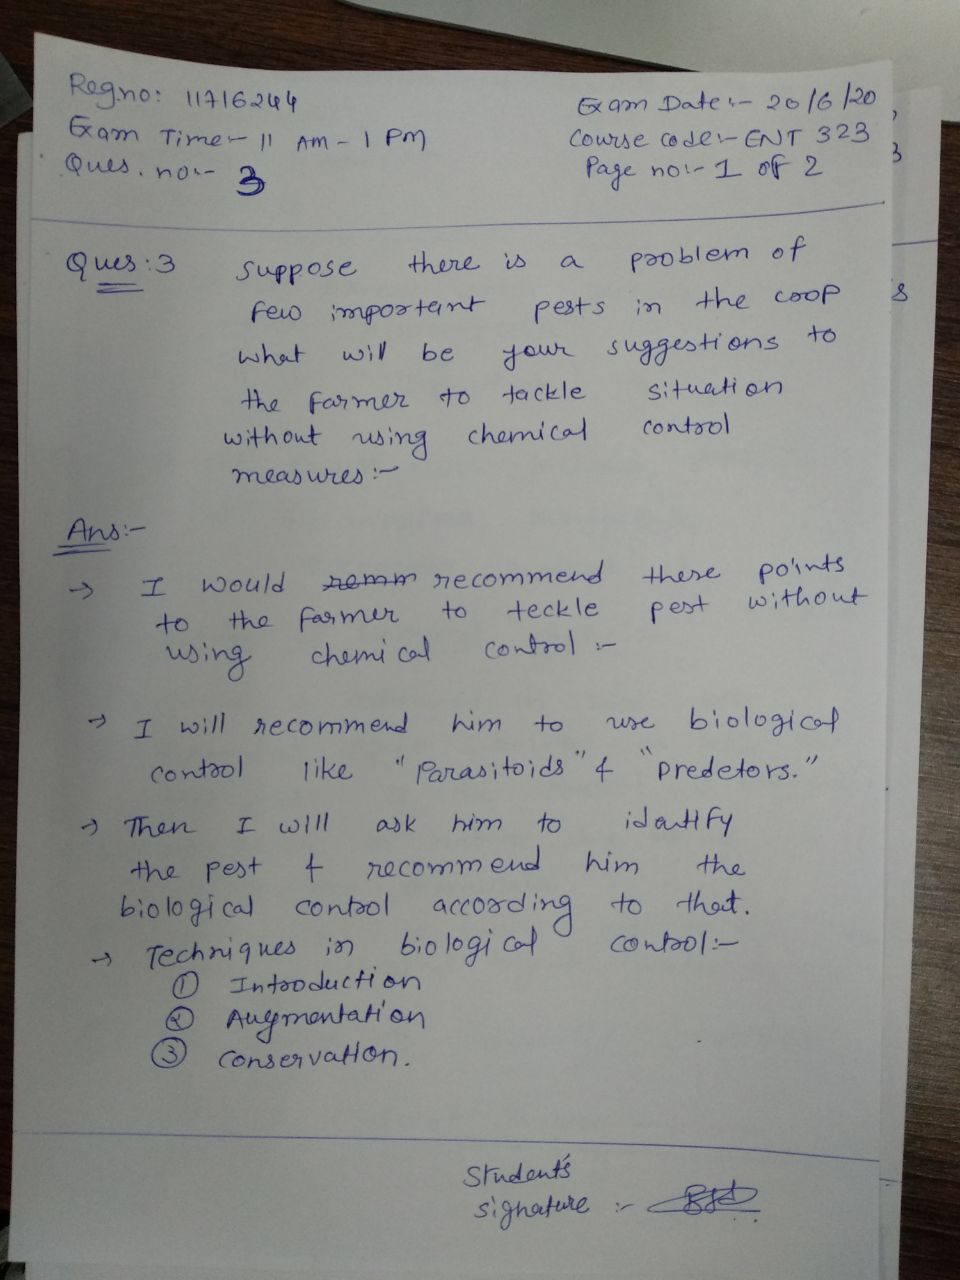 Reg.no: 11716244
Exam Date:- 20/6/20
Exam Time:- 11 AM - 1 PM
Course code:- ENT 323
Ques. no:- 3
Page no:- 1 of 2
Ques:3 suppose there is a problem of
few important pests in the crop
what will be your suggestions to
the farmer to tackle situation
without using chemical control
measures:-
Ans:-
→ I would remm recommend these points
to the farmer to teckle pest without
using chemical control :-
→ I will recommend him to use biological
control like "Parasitoids" & "predetors."
→ Then I will ask him to identify
the pest & recommend him the
biological control according to that.
→ Techniques in biological control:-
① Introduction
② Augmentation
③ conservation.
Student's
signature :-